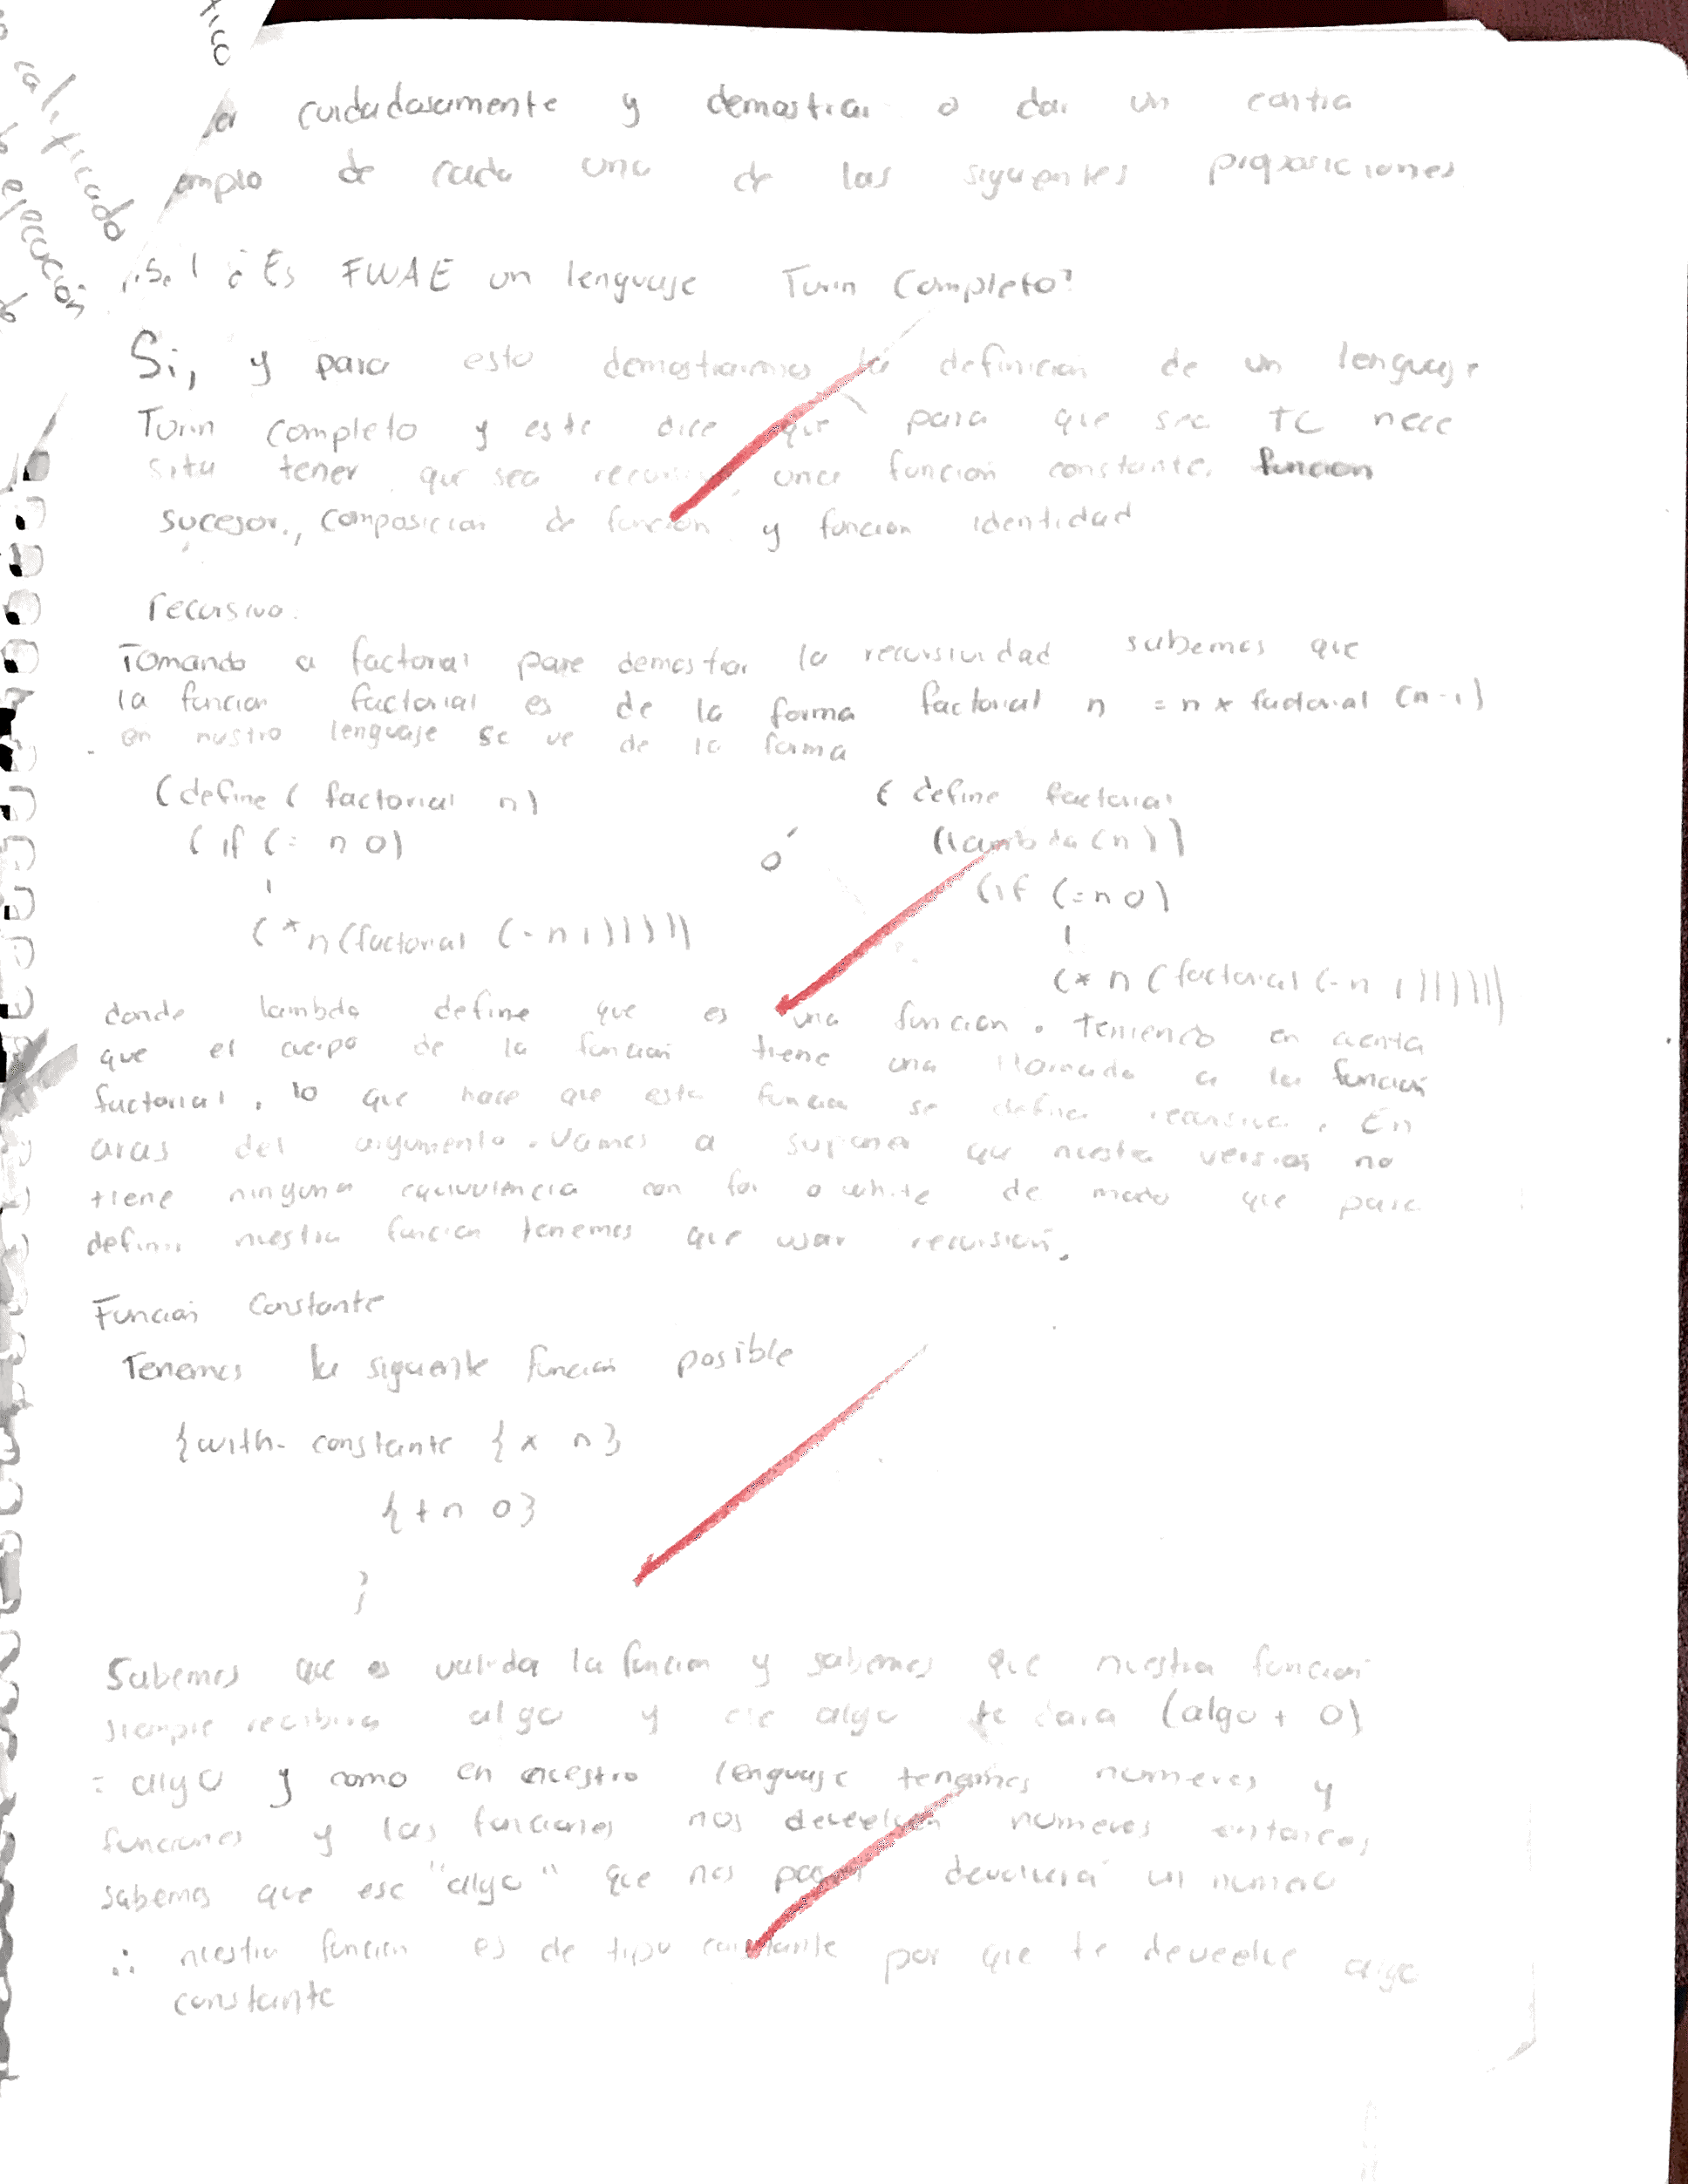 cuidadosamente y demostrar o dar un contra
emplo de cada una de las siguientes proposiciones
.5.1 ¿Es FWAE un lenguaje Turin Completo?
Si, y para esto demostraremos la definicion de un lenguaje
Turin completo y este dice que para que sea TC nece
sita tener que sea recursivo, una función constante, funcion
sucesor., composicion de función y funcion identidad
recursivo:
Tomando a factorial para demostrar la recursividad sabemos que
la funcion factorial es de la forma factorial n = n * factorial (n-1)
en nustro lenguaje se ve de la forma
(define ( factorial n)
(if (= n 0)
1
(* n (factorial (- n 1))))))
ó
( define factorial
(lambda (n))
(if (= n 0)
1
(* n (factorial (- n 1)))))))
donde lambda define que es una funcion. Teniendo en cuenta
que el cuerpo de la función tiene una llamada a la función
factorial, lo que hace que esta funcion se defina recursiva. En
aras del argumento. Vamos a suponer que nuestra version no
tiene ninguna equivalencia con for o while de modo que para
definir nuestra funcion tenemos que usar recursión.
Función Constante
Tenemos la siguiente función posible
{with- constante { x n}
{+ n 0}
}
Sabemos que es valida la funcion y sabemos que nuestra función
siempre recibira algo y ese algo te dara (algo + 0)
= algo y como en nuestro lenguaje tenemos numeros y
funciones y las funciones nos devuelven numeros entonces
sabemos que ese "algo" que nos pasan devolverá un numero
∴ nuestra funcion es de tipo constante por que te devuelve algo
constante
calificado